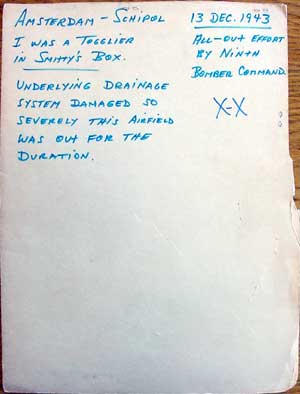 AMSTERDAM - SCHIPOL
13 DEC. 1943
I WAS A TOGGLIER
IN SMITTY'S BOX.
ALL-OUT EFFORT
BY NINTH
BOMBER COMMAND
X-X
UNDERLYING DRAINAGE
SYSTEM DAMAGED SO
SEVERELY THIS AIRFIELD
WAS OUT FOR THE
DURATION.